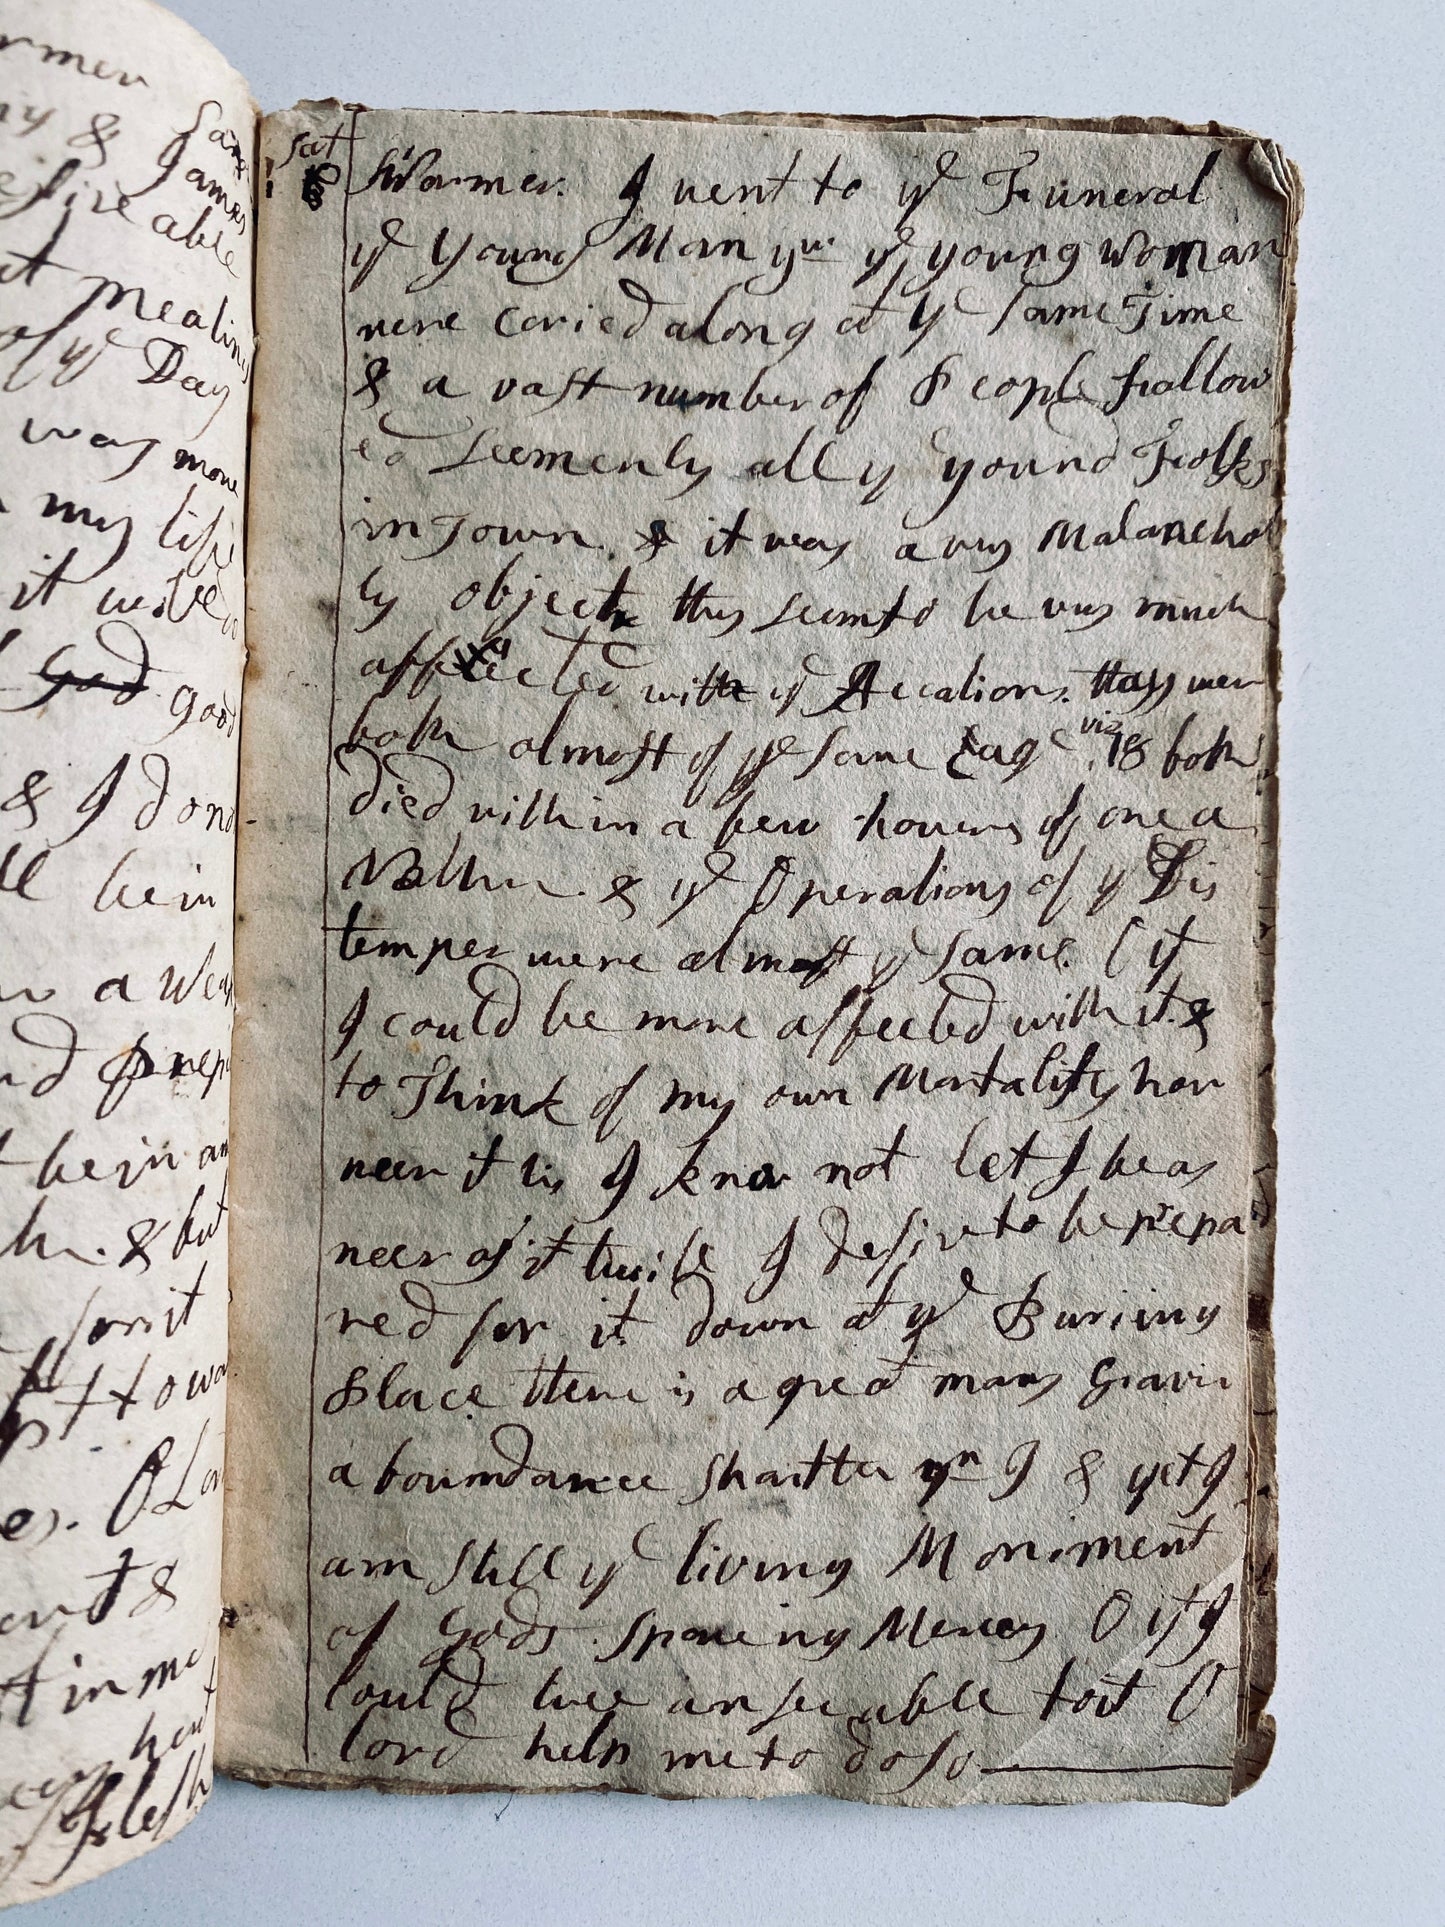 rmer
ny & James
esireable
at mealing
of ye Day
was more
my life
it
God good
& I do no
ll be in
a
nd prep
t be in an
& but
for it
t towa
es. O Lor
&
t in me
heart
flesh
Sat
8
Warmer. I went to ye Funeral
ye Young Man yn ye young Woman
were caried along at ye same Time
& a vast number of People follow
ed seemenly all ye yound Folks
in Town. & it was a very Malancho
ly object they seem to be very much
affected with ye Accation. they wer
both almost of ye same age viz 18 both
died within a few houers of one a
Nother & ye Operations of ye Dis
temper were almost ye same. O if
I could be more affected with it. &
to Think of my own Mortality how
neer it is I know not let I be as
neer as it twill I desire to be prepa
red for it down at ye Buriing
Place there is a great many Graves
aboundance Shortter yn I & yet I
am Still ye living Moniment
of Gods Spareing Mercy O if I
Could live answerable to it O
lord help me to do so